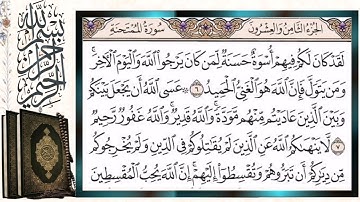 الجزء الثامن والعشرون
سورة الممتحنة
لَقَدْ كَانَ لَكُمْ فِيهِمْ أُسْوَةٌ حَسَنَةٌ لِّمَن كَانَ يَرْجُوا اللَّهَ وَالْيَوْمَ الْآخِرَ ۚ
وَمَن يَتَوَلَّ فَإِنَّ اللَّهَ هُوَ الْغَنِيُّ الْحَمِيدُ ٦ ۞ عَسَى اللَّهُ أَن يَجْعَلَ بَيْنَكُمْ
وَبَيْنَ الَّذِينَ عَادَيْتُم مِّنْهُم مَّوَدَّةً ۚ وَاللَّهُ قَدِيرٌ ۚ وَاللَّهُ غَفُورٌ رَّحِيمٌ
٧ لَّا يَنْهَاكُمُ اللَّهُ عَنِ الَّذِينَ لَمْ يُقَاتِلُوكُمْ فِي الدِّينِ وَلَمْ يُخْرِجُوكُم
مِّن دِيَارِكُمْ أَن تَبَرُّوهُمْ وَتُقْسِطُوا إِلَيْهِمْ ۚ إِنَّ اللَّهَ يُحِبُّ الْمُقْسِطِينَ
بسم الله الرحمن الرحيم